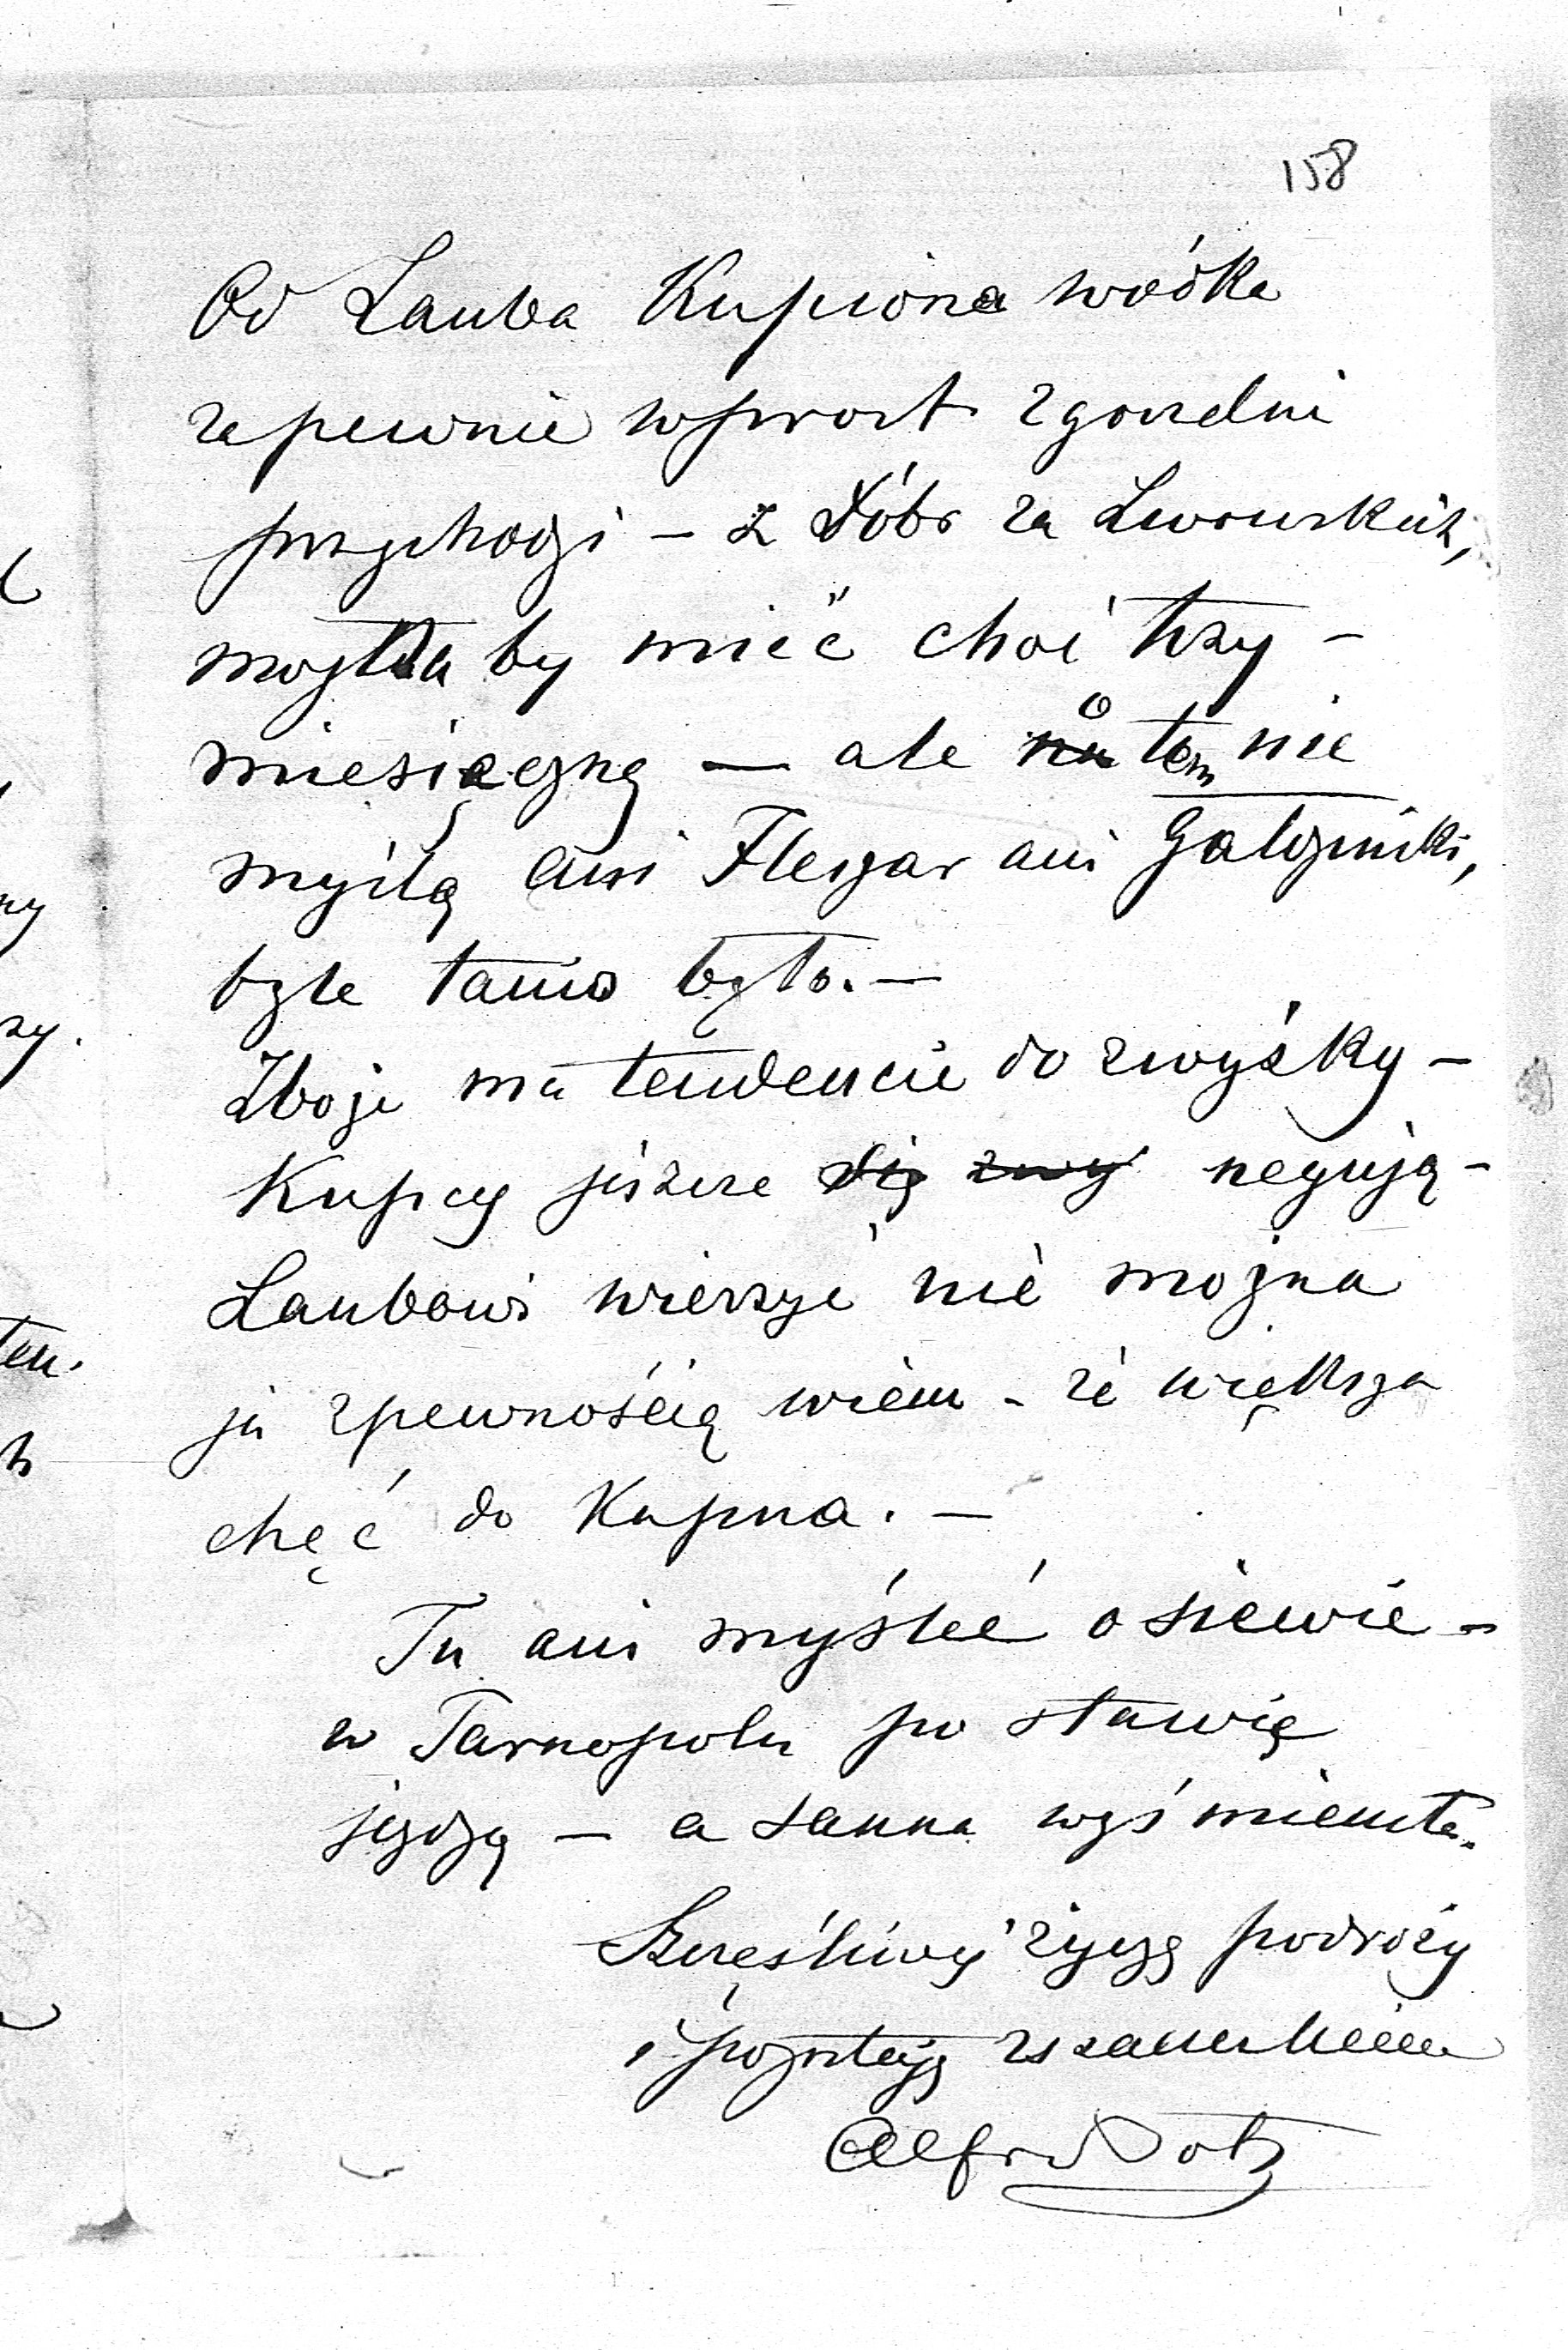 158
Od Lauba Kupiona wódka
zapewnie wprost zgorzelni
przychodzi – z Dóbr za Lwowskich,
możnaby mieć choć trzy –
miesięczną — ale o tem nie
myślą ani Fleszar ani Gałziński,
byle tanio było. —
Zboże ma tendencie do zwyżky –
Kupcy jeszcze się zwy negują –
Laubowi wierzyć nie można
ja zpewnością wiem – że większa
chęć do Kupna. —
Tu ani myśleć o siewie –
w Tarnopolu po stawie
jeżdżą — a sanna wyśmienita.
Szczęśliwej życzę podroży
i pozostaję zszacunkiem
Alfred